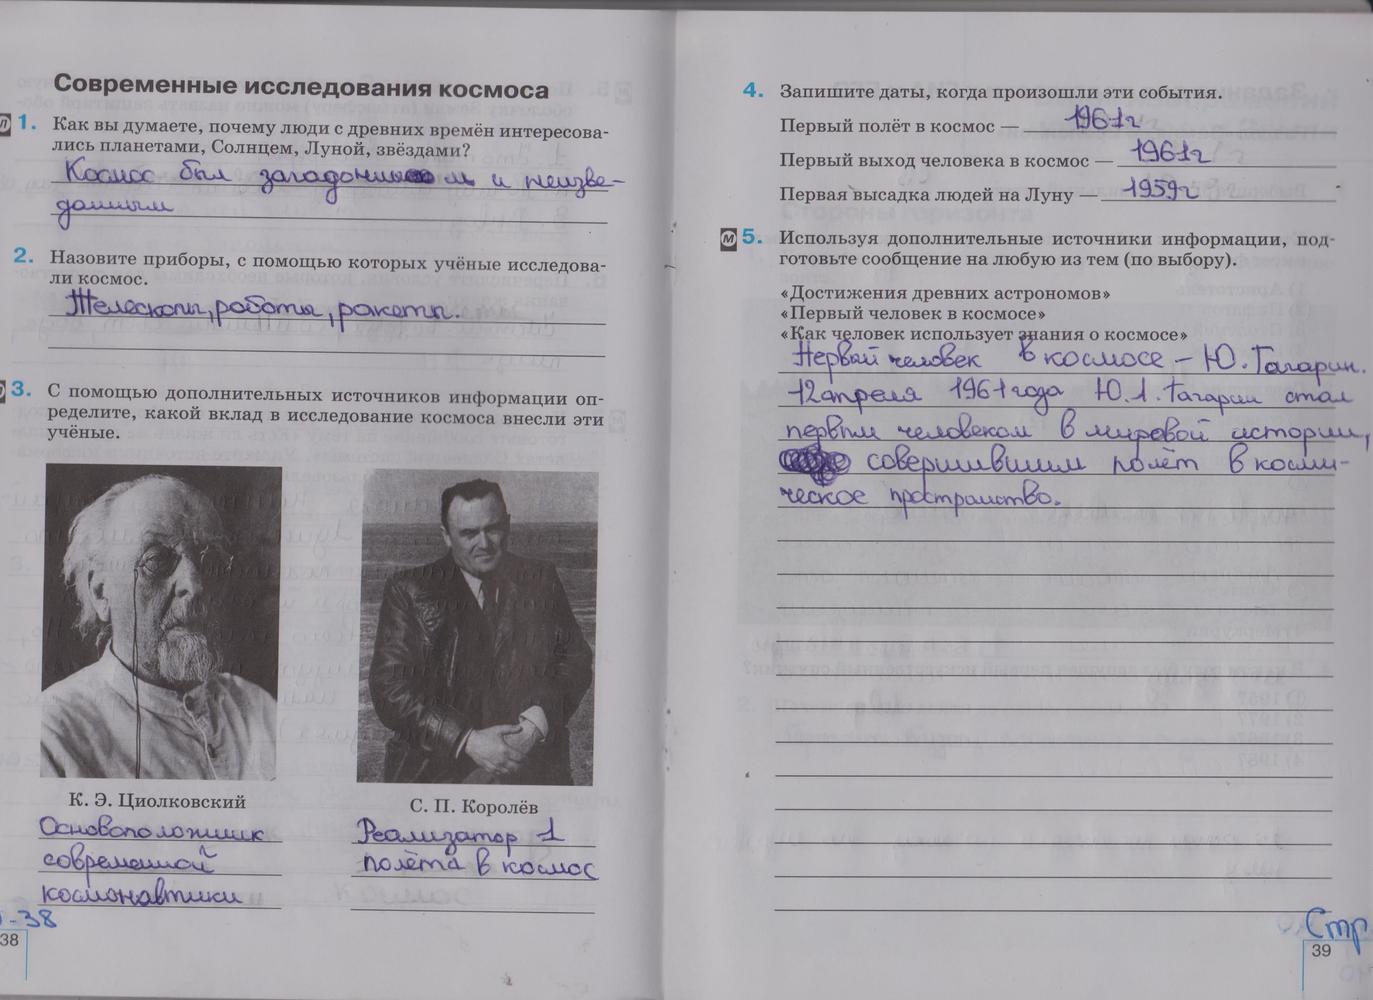 Современные исследования космоса
1. Как вы думаете, почему люди с древних времён интересова-
лись планетами, Солнцем, Луной, звёздами?
Космос был загадочным и неизве-
данным
2. Назовите приборы, с помощью которых учёные исследова-
ли космос.
Телескопы, роботы, ракеты.
3. С помощью дополнительных источников информации оп-
ределите, какой вклад в исследование космоса внесли эти
учёные.
К. Э. Циолковский
Основоположник
современной
космонавтики
С. П. Королёв
Реализатор 1
полёта в космос
-38
38
4. Запишите даты, когда произошли эти события.
Первый полёт в космос — 1961г
Первый выход человека в космос — 1961г
Первая высадка людей на Луну — 1959г
м 5. Используя дополнительные источники информации, под-
готовьте сообщение на любую из тем (по выбору).
«Достижения древних астрономов»
«Первый человек в космосе»
«Как человек использует знания о космосе»
Первый человек в космосе – Ю. Гагарин.
12 апреля 1961 года Ю. А. Гагарин стал
первым человеком в мировой истории,
совершившим полёт в косми-
ческое пространство.
Стр
39